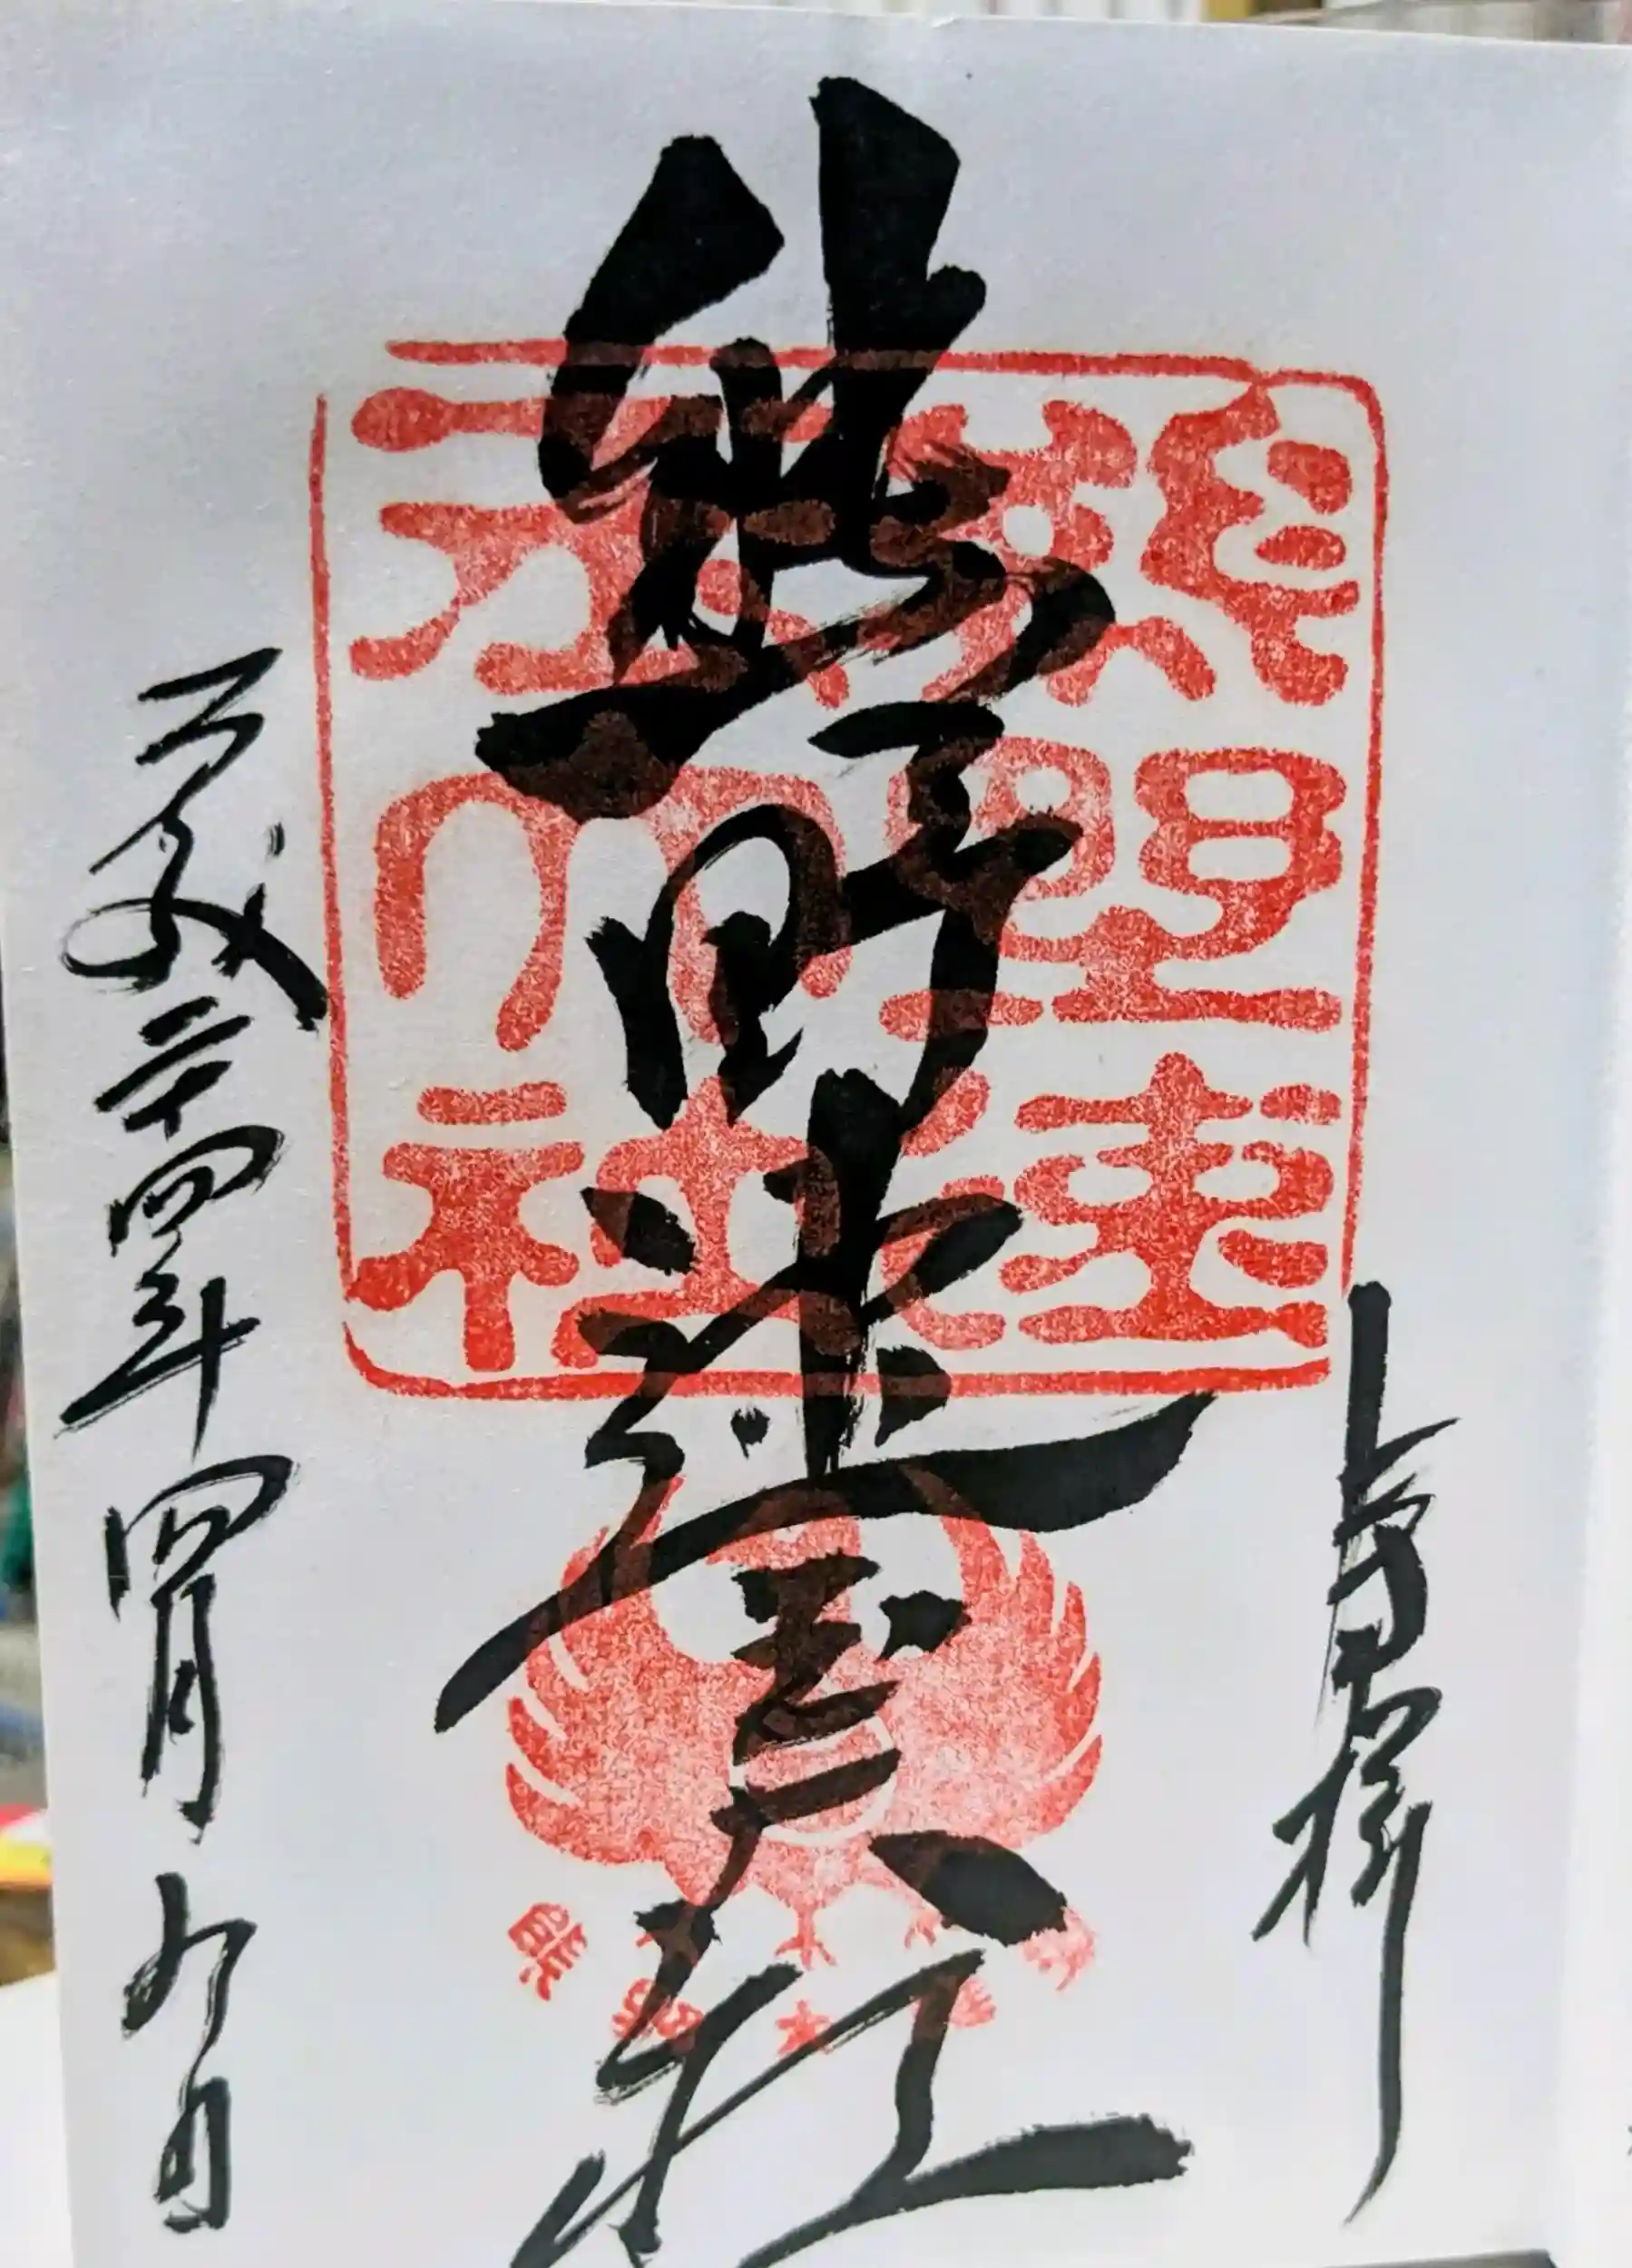 熊野速玉大社
熊野速
玉大社
平成二十四年四月九日